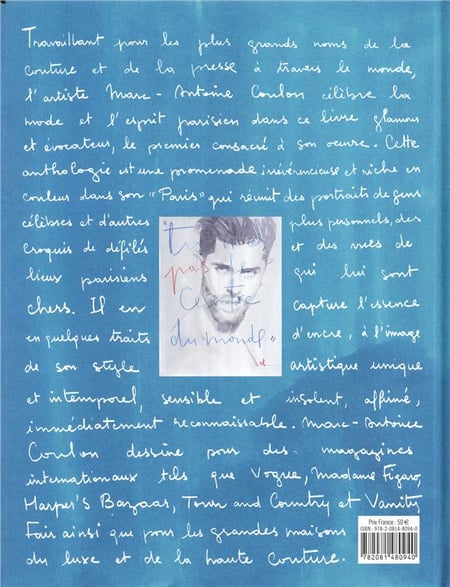 Travaillant pour les plus grands noms de la
couture et de la presse à travers le monde,
l'artiste Marc-Antoine Coulon célèbre la
mode et l'esprit parisien dans ce livre glamour
et évocateur, le premier consacré à son oeuvre. Cette
anthologie est une promenade irrévérencieuse et riche en
couleur dans son "Paris" qui réunit des portraits de gens
célèbres et d'autres plus personnels, des
croquis de défilés et des vues de
lieux parisiens qui lui sont
chers. Il en capture l'essence
en quelques traits d'encre, à l'image
de son style artistique unique
et intemporel, sensible et insolent, affiné,
immédiatement reconnaissable. Marc-Antoine
Coulon dessine pour des magazines
internationaux tels que Vogue, Madame Figaro,
Harper's Bazaar, Town and Country et Vanity
Fair ainsi que pour les grandes maisons
du luxe et de la haute couture.
pas
du monde"
Prix France : 50 €
ISBN : 978-2-0814-8094-0
9782081480940